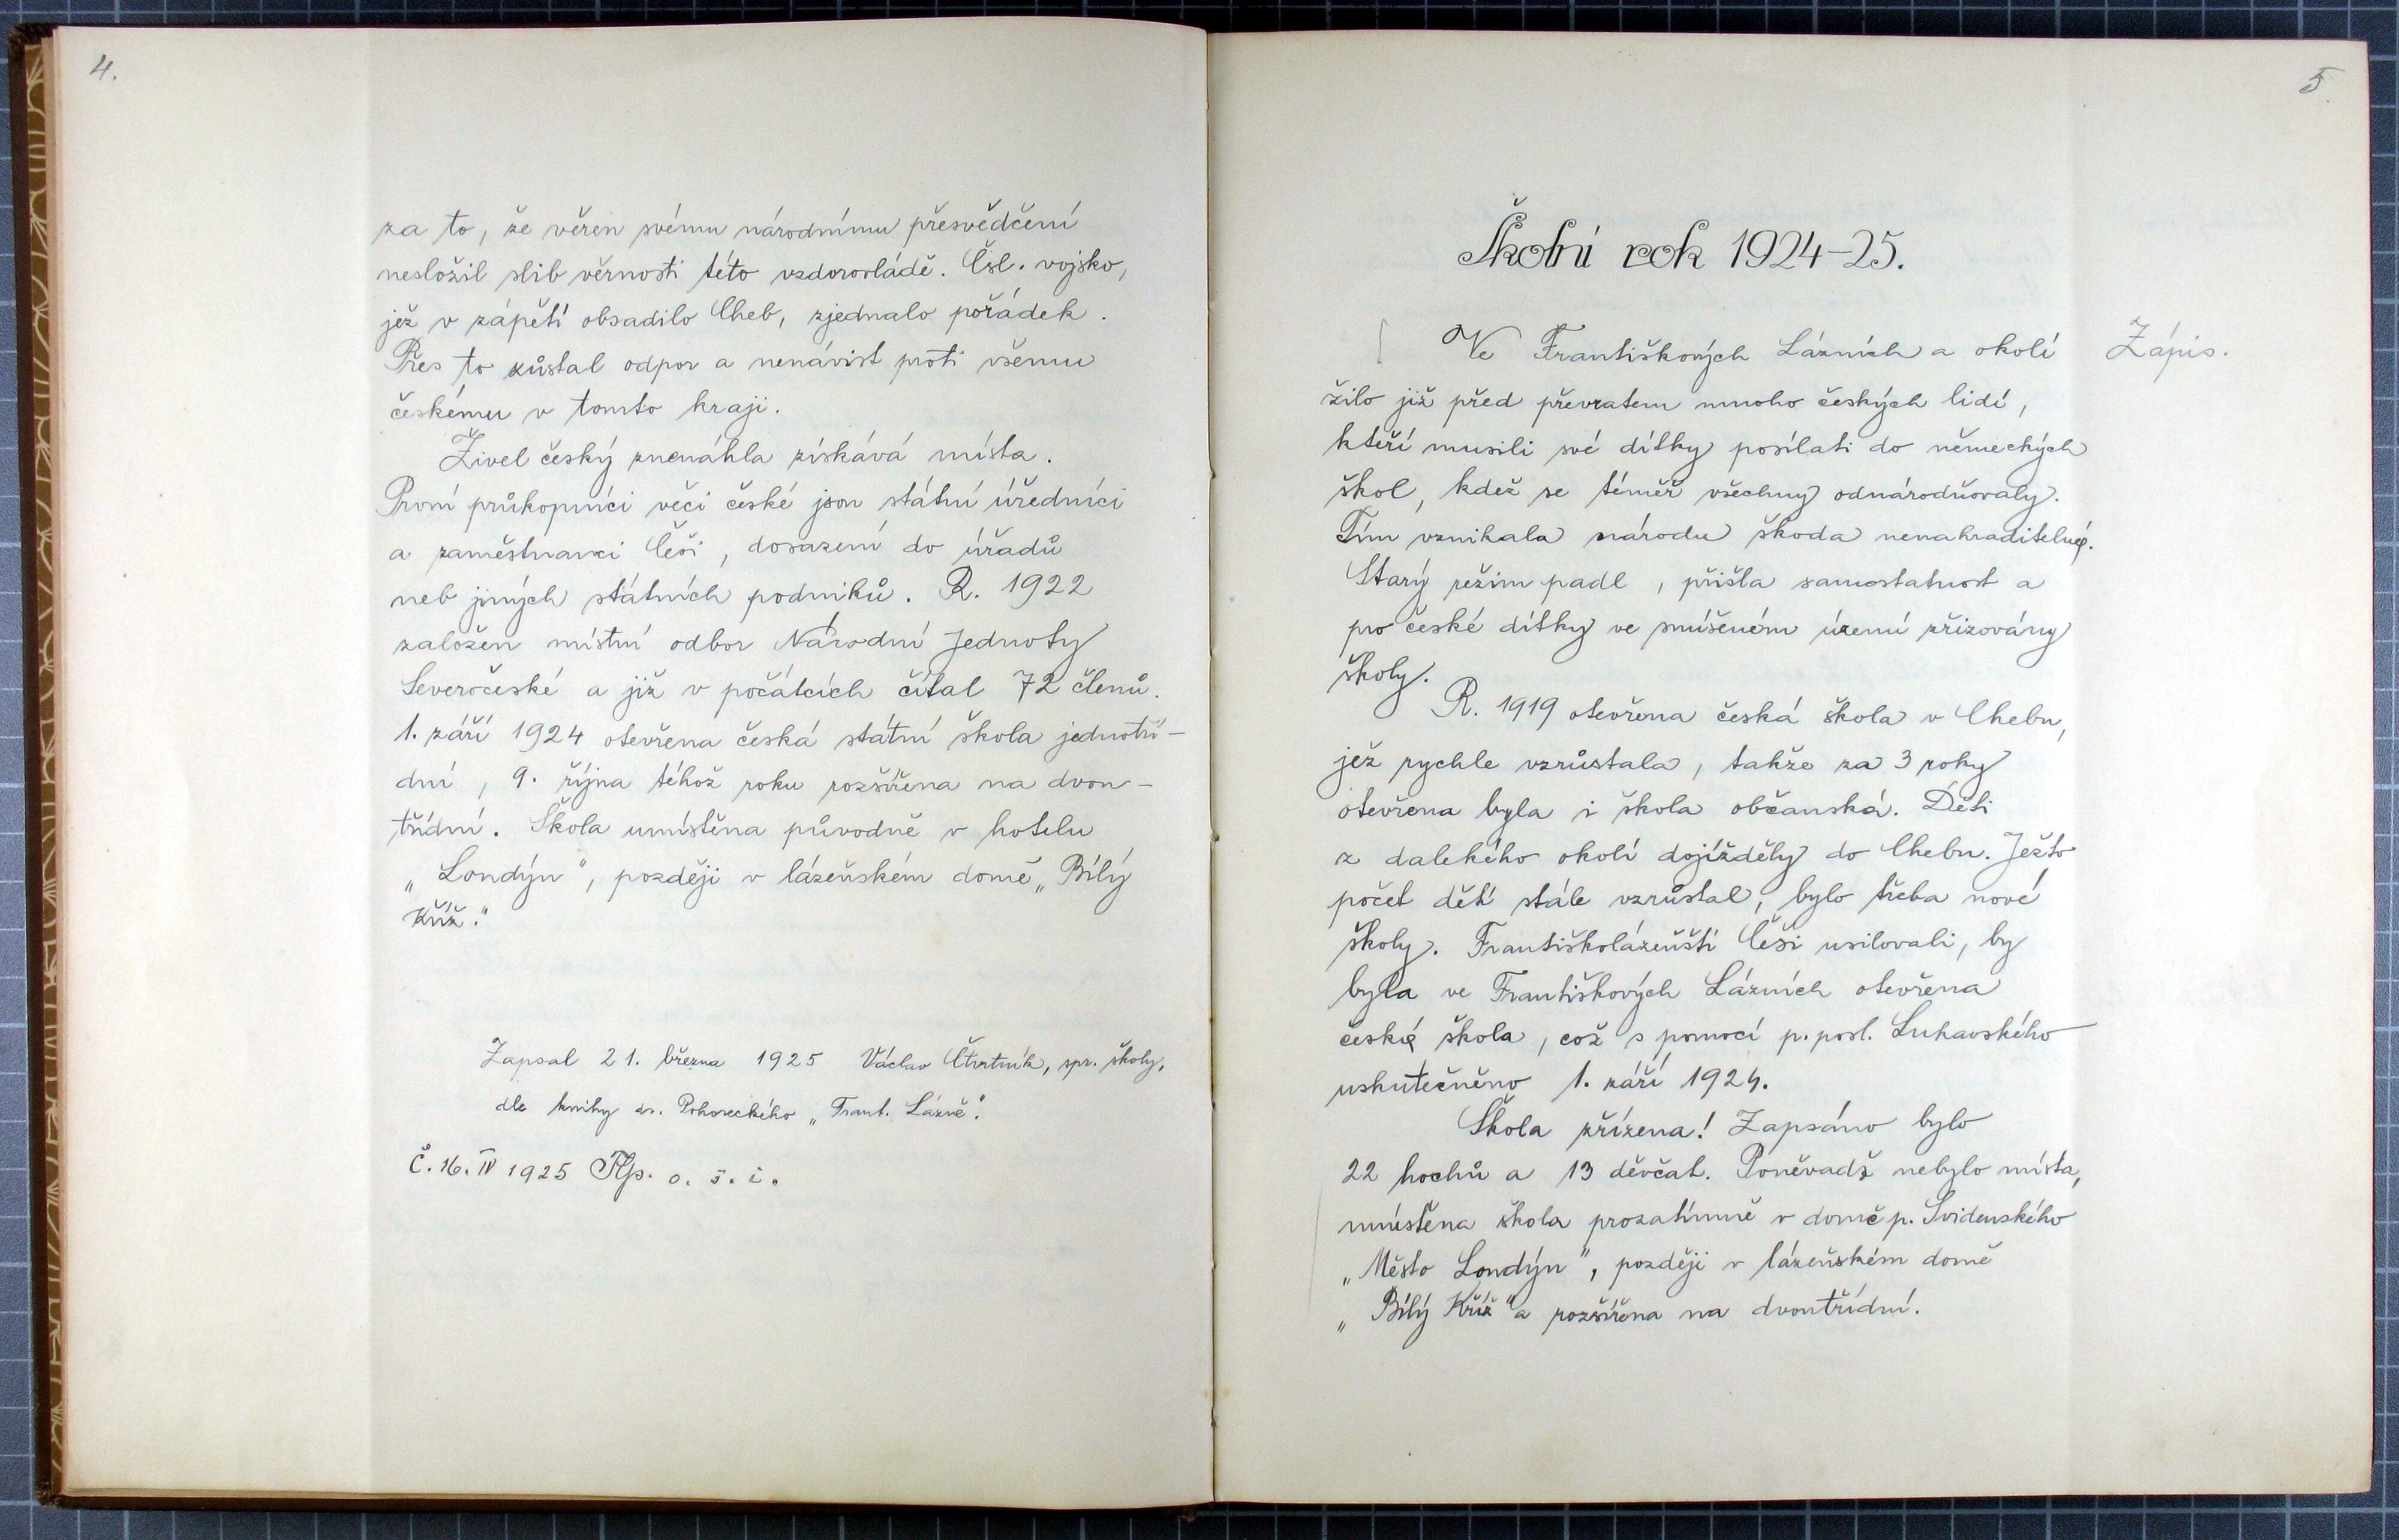 4.
za to, že věren svému národnímu přesvědčení
nesložil slib věrnosti této vzdorovládě. Čsl. vojsko,
jež v zápětí obsadilo Cheb, zjednalo pořádek.
Přes to zůstal odpor a nenávist proti všemu
českému v tomto kraji.
Živel český znenáhla získává místa.
První průkopníci věci české jsou státní úředníci
a zaměstnanci Češi, dosazení do úřadů
neb jiných státních podniků. R. 1922
založen místní odbor Národní Jednoty
Severočeské a již v počátcích čítal 72 členů.
1. září 1924 otevřena česká státní škola jednotří-
dní, 9. října téhož roku rozšířena na dvou-
třídní. Škola umístěna původně v hotelu
„Londýn", později v lázeňském domě „Bílý
Kříž."
Zapsal 21. března 1925 Václav Čtvrtník, spr. školy,
dle knihy dr. Pohoreckého „Frant. Lázně".
Č. 16. IV 1925 o. š. i.
5.
Školní rok 1924-25.
Ve Františkových Lázních a okolí
Zápis.
žilo již před převratem mnoho českých lidí,
kteří musili své dítky posílati do německých
škol, kdež se téměř všechny odnárodňovaly.
Tím vznikala národu škoda nenahraditelná.
Starý režim padl, přišla samostatnost a
pro české dítky ve smíšeném území zřizovány
školy.
R. 1919 otevřena česká škola v Chebu,
jež rychle vzrůstala, takže za 3 roky
otevřena byla i škola občanská. Děti
z dalekého okolí dojížděly do Chebu. Ježto
počet dětí stále vzrůstal, bylo třeba nové
školy. Františkolázeňští Češi usilovali, by
byla ve Františkových Lázních otevřena
česká škola, což s pomocí p. posl. Lukavského
uskutečněno 1. září 1924.
Škola zřízena! Zapsáno bylo
22 hochů a 13 děvčat. Poněvadž nebylo místa,
umístěna škola prozatímně v domě p. Svidenského
„Město Londýn", později v lázeňském domě
„Bílý Kříž" a rozšířena na dvoutřídní.